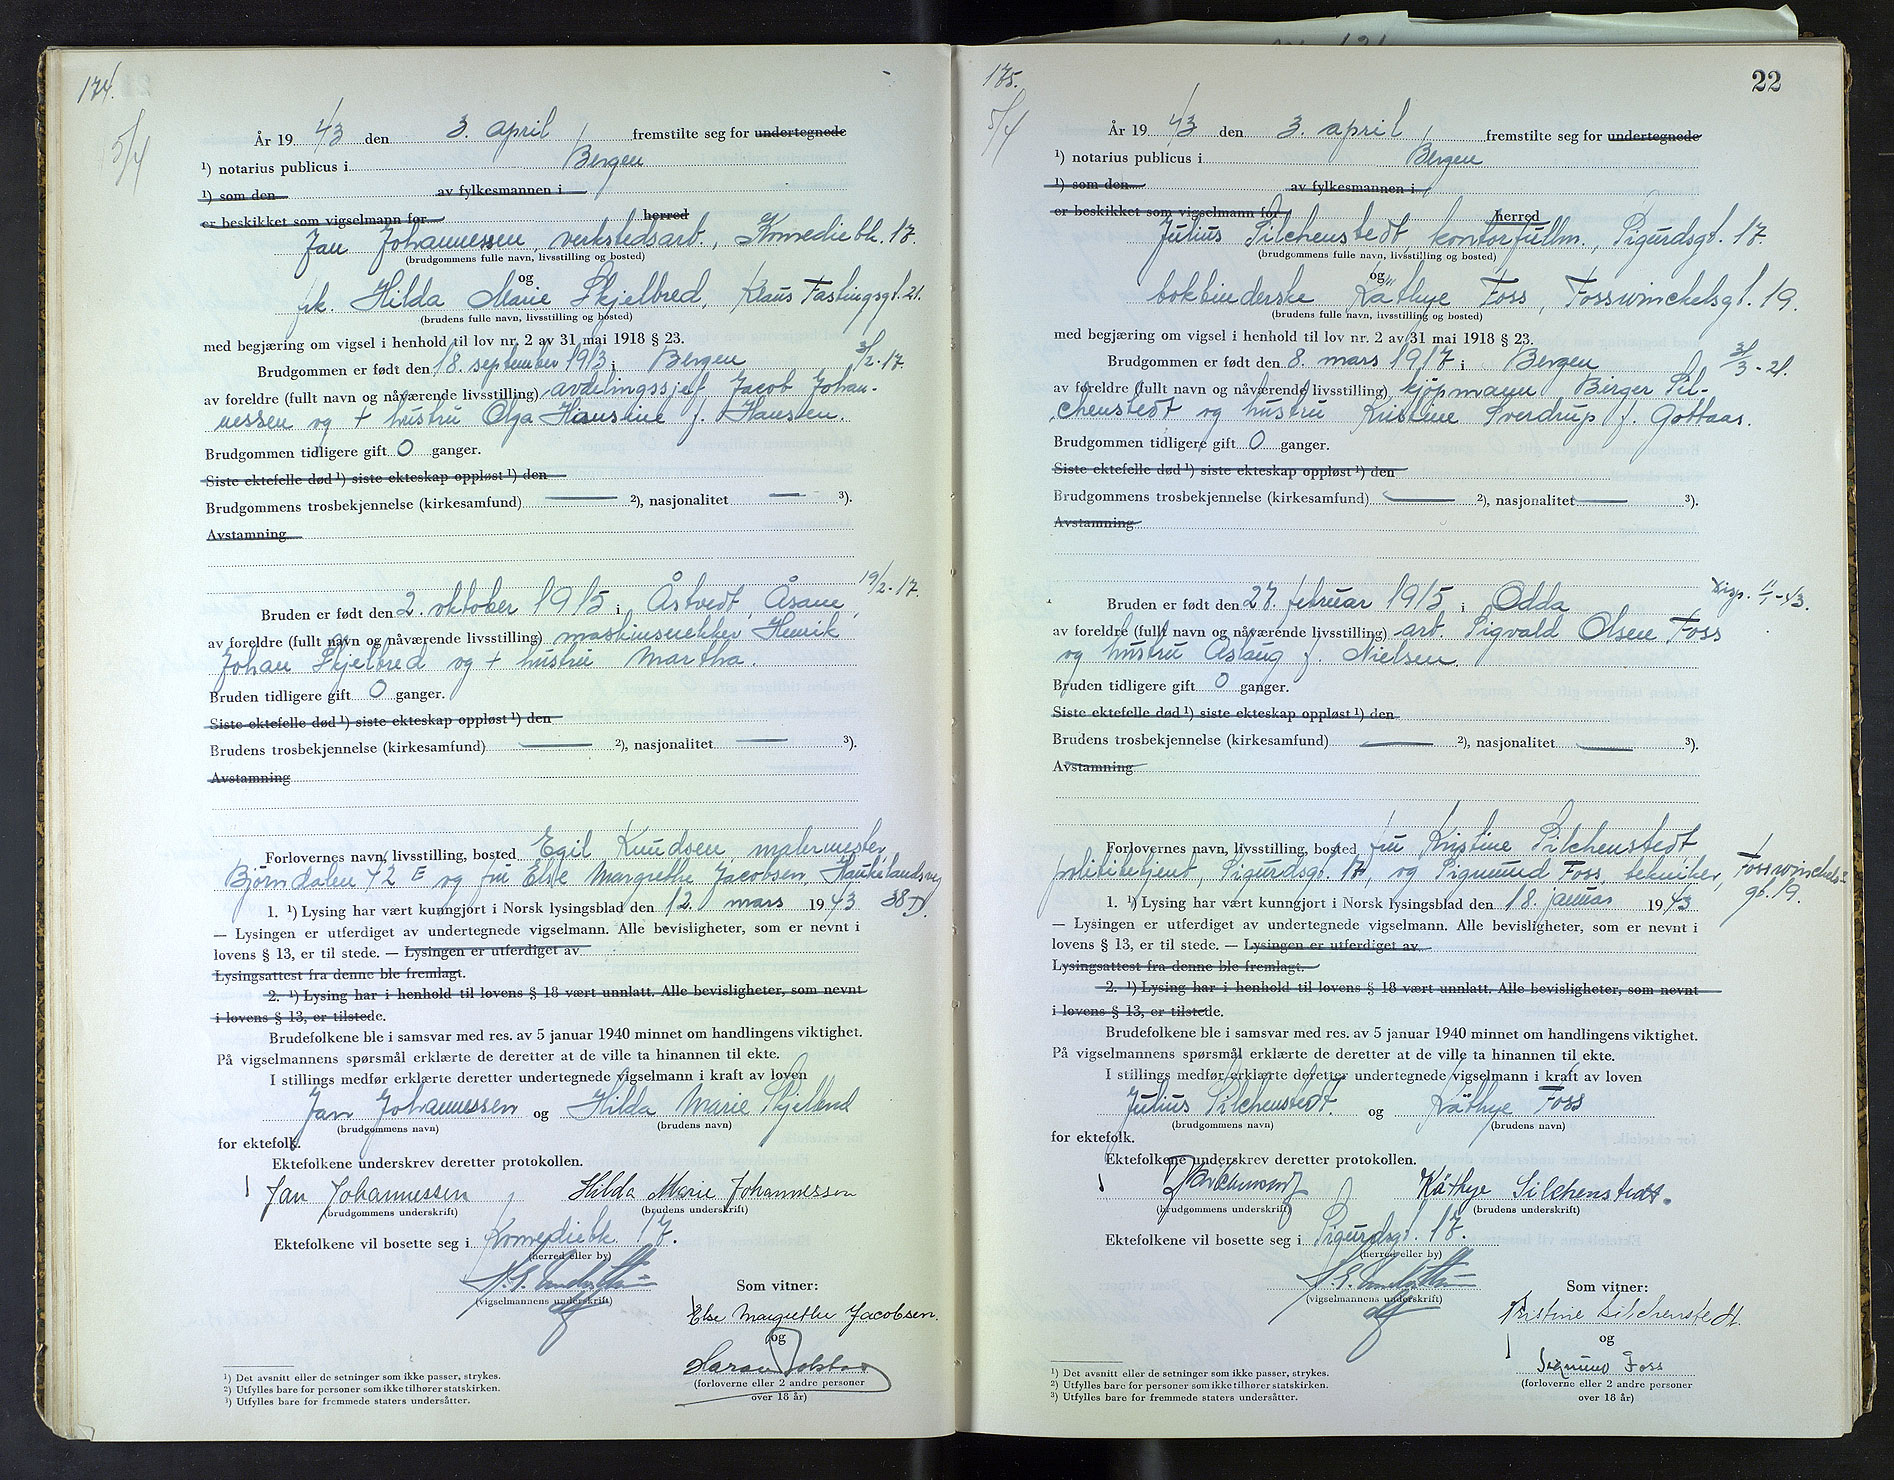 174.
5/4
År 19 43 den 3. april fremstilte seg for undertegnede
¹) notarius publicus i Bergen
¹) som den av fylkesmannen i
er beskikket som vigselmann for herred
Jan Johannessen, verkstedsarb., Komediebk. 17.
(brudgommens fulle navn, livsstilling og bosted)
og
frk. Hilda Marie Skjelbred, Klaus Fastingsgt. 21.
(brudens fulle navn, livsstilling og bosted)
med begjæring om vigsel i henhold til lov nr. 2 av 31 mai 1918 § 23.
Brudgommen er født den 18. september 1913 i Bergen 3/2-17.
av foreldre (fullt navn og nåværende livsstilling) avdelingssjef Jacob Johan-
nessen og + hustru Olga Hansine f. Hansten.
Brudgommen tidligere gift 0 ganger.
Siste ektefelle død ¹) siste ekteskap oppløst ¹) den
Brudgommens trosbekjennelse (kirkesamfund) — ²), nasjonalitet — ³).
Avstamning
19/2-17.
Bruden er født den 2. oktober 1915 i Åstvedt, Åsane,
av foreldre (fullt navn og nåværende livsstilling) maskinsnekker Henrik
Johan Skjelbred og + hustru Martha.
Bruden tidligere gift 0 ganger.
Siste ektefelle død ¹) siste ekteskap oppløst ¹) den
Brudens trosbekjennelse (kirkesamfund) — ²), nasjonalitet — ³).
Avstamning
Forlovernes navn, livsstilling, bosted Egil Knudsen, malermester,
Bjørndalen 42 E og fru Else Margrethe Jacobsen, Haukelandsvei
38 D.
1. ¹) Lysing har vært kunngjort i Norsk lysingsblad den 12. mars 19 43
— Lysingen er utferdiget av undertegnede vigselmann. Alle bevisligheter, som er nevnt i
lovens § 13, er til stede. — Lysingen er utferdiget av
Lysingsattest fra denne ble fremlagt.
2. ¹) Lysing har i henhold til lovens § 18 vært unnlatt. Alle bevisligheter, som nevnt
i lovens § 13, er tilstede.
Brudefolkene ble i samsvar med res. av 5 januar 1940 minnet om handlingens viktighet.
På vigselmannens spørsmål erklærte de deretter at de ville ta hinannen til ekte.
I stillings medfør erklærte deretter undertegnede vigselmann i kraft av loven
Jan Johannessen og Hilda Marie Skjelbred
(brudgommens navn) (brudens navn)
for ektefolk.
Ektefolkene underskrev deretter protokollen.
Jan Johannessen Hilda Marie Johannessen
(brudgommens underskrift) (brudens underskrift)
Ektefolkene vil bosette seg i Komediebk. 17.
(herred eller by)
(vigselmannens underskrift)
Som vitner:
Else Margrethe Jacobsen.
og
(forloverne eller 2 andre personer
over 18 år)
¹) Det avsnitt eller de setninger som ikke passer, strykes.
²) Utfylles bare for personer som ikke tilhører statskirken.
³) Utfylles bare for fremmede staters undersåtter.
175.
22
5/4
År 19 43 den 3. april fremstilte seg for undertegnede
¹) notarius publicus i Bergen
¹) som den av fylkesmannen i
er beskikket som vigselmann for herred
Julius Silchenstedt, kontorfullm., Sigurdsgt. 17.
(brudgommens fulle navn, livsstilling og bosted)
og
bokbinderske Käthye Foss, Fosswinckelsgt. 19.
(brudens fulle navn, livsstilling og bosted)
med begjæring om vigsel i henhold til lov nr. 2 av 31 mai 1918 § 23.
Brudgommen er født den 8. mars 1917 i Bergen 31/3-21.
av foreldre (fullt navn og nåværende livsstilling) kjøpmann Birger Sil-
chenstedt og hustru Kristine Sverdrup f. Gottaas.
Brudgommen tidligere gift 0 ganger.
Siste ektefelle død ¹) siste ekteskap oppløst ¹) den
Brudgommens trosbekjennelse (kirkesamfund) — ²), nasjonalitet — ³).
Avstamning
Bruden er født den 27. februar 1915 i Odda
av foreldre (fullt navn og nåværende livsstilling) arb. Sigvald Olsen Foss
og hustru Aslaug f. Nielsen.
Bruden tidligere gift 0 ganger.
Siste ektefelle død ¹) siste ekteskap oppløst ¹) den
Brudens trosbekjennelse (kirkesamfund) — ²), nasjonalitet — ³).
Avstamning
Forlovernes navn, livsstilling, bosted fru Kristine Silchenstedt
politibetjent, Sigurdsgt. 17, og Sigmund Foss, tekniker, Fosswinckels-
gt. 19.
1. ¹) Lysing har vært kunngjort i Norsk lysingsblad den 18. januar 19 43
— Lysingen er utferdiget av undertegnede vigselmann. Alle bevisligheter, som er nevnt i
lovens § 13, er til stede. — Lysingen er utferdiget av
Lysingsattest fra denne ble fremlagt.
2. ¹) Lysing har i henhold til lovens § 18 vært unnlatt. Alle bevisligheter, som nevnt
i lovens § 13, er tilstede.
Brudefolkene ble i samsvar med res. av 5 januar 1940 minnet om handlingens viktighet.
På vigselmannens spørsmål erklærte de deretter at de ville ta hinannen til ekte.
I stillings medfør erklærte deretter undertegnede vigselmann i kraft av loven
Julius Silchenstedt og Käthye Foss
(brudgommens navn) (brudens navn)
for ektefolk.
Ektefolkene underskrev deretter protokollen.
Käthye Silchenstedt.
(brudgommens underskrift) (brudens underskrift)
Ektefolkene vil bosette seg i Sigurdsgt. 17.
(herred eller by)
(vigselmannens underskrift)
Som vitner:
Kristine Silchenstedt.
og
Sigmund Foss
(forloverne eller 2 andre personer
over 18 år)
¹) Det avsnitt eller de setninger som ikke passer, strykes.
²) Utfylles bare for personer som ikke tilhører statskirken.
³) Utfylles bare for fremmede staters undersåtter.